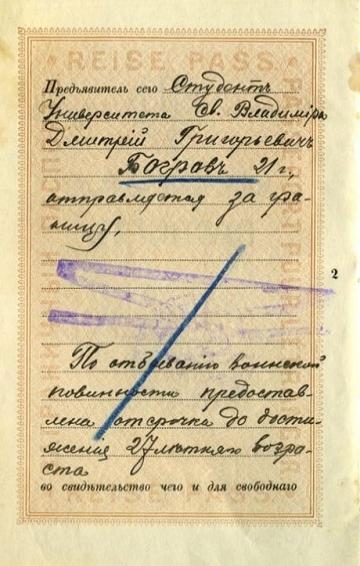 REISE PASS
Предъявитель сего Студентъ
Университета Св. Владиміра
Дмитрій Григорьевичъ
Богровъ 21 г.,
отправляется за гра-
ницу,
2
По отбыванію воинской
повинности предостав-
лена отсрочка до дости-
женія 27 лѣтняго возра-
ста
во свидѣтельство чего и для свободнаго